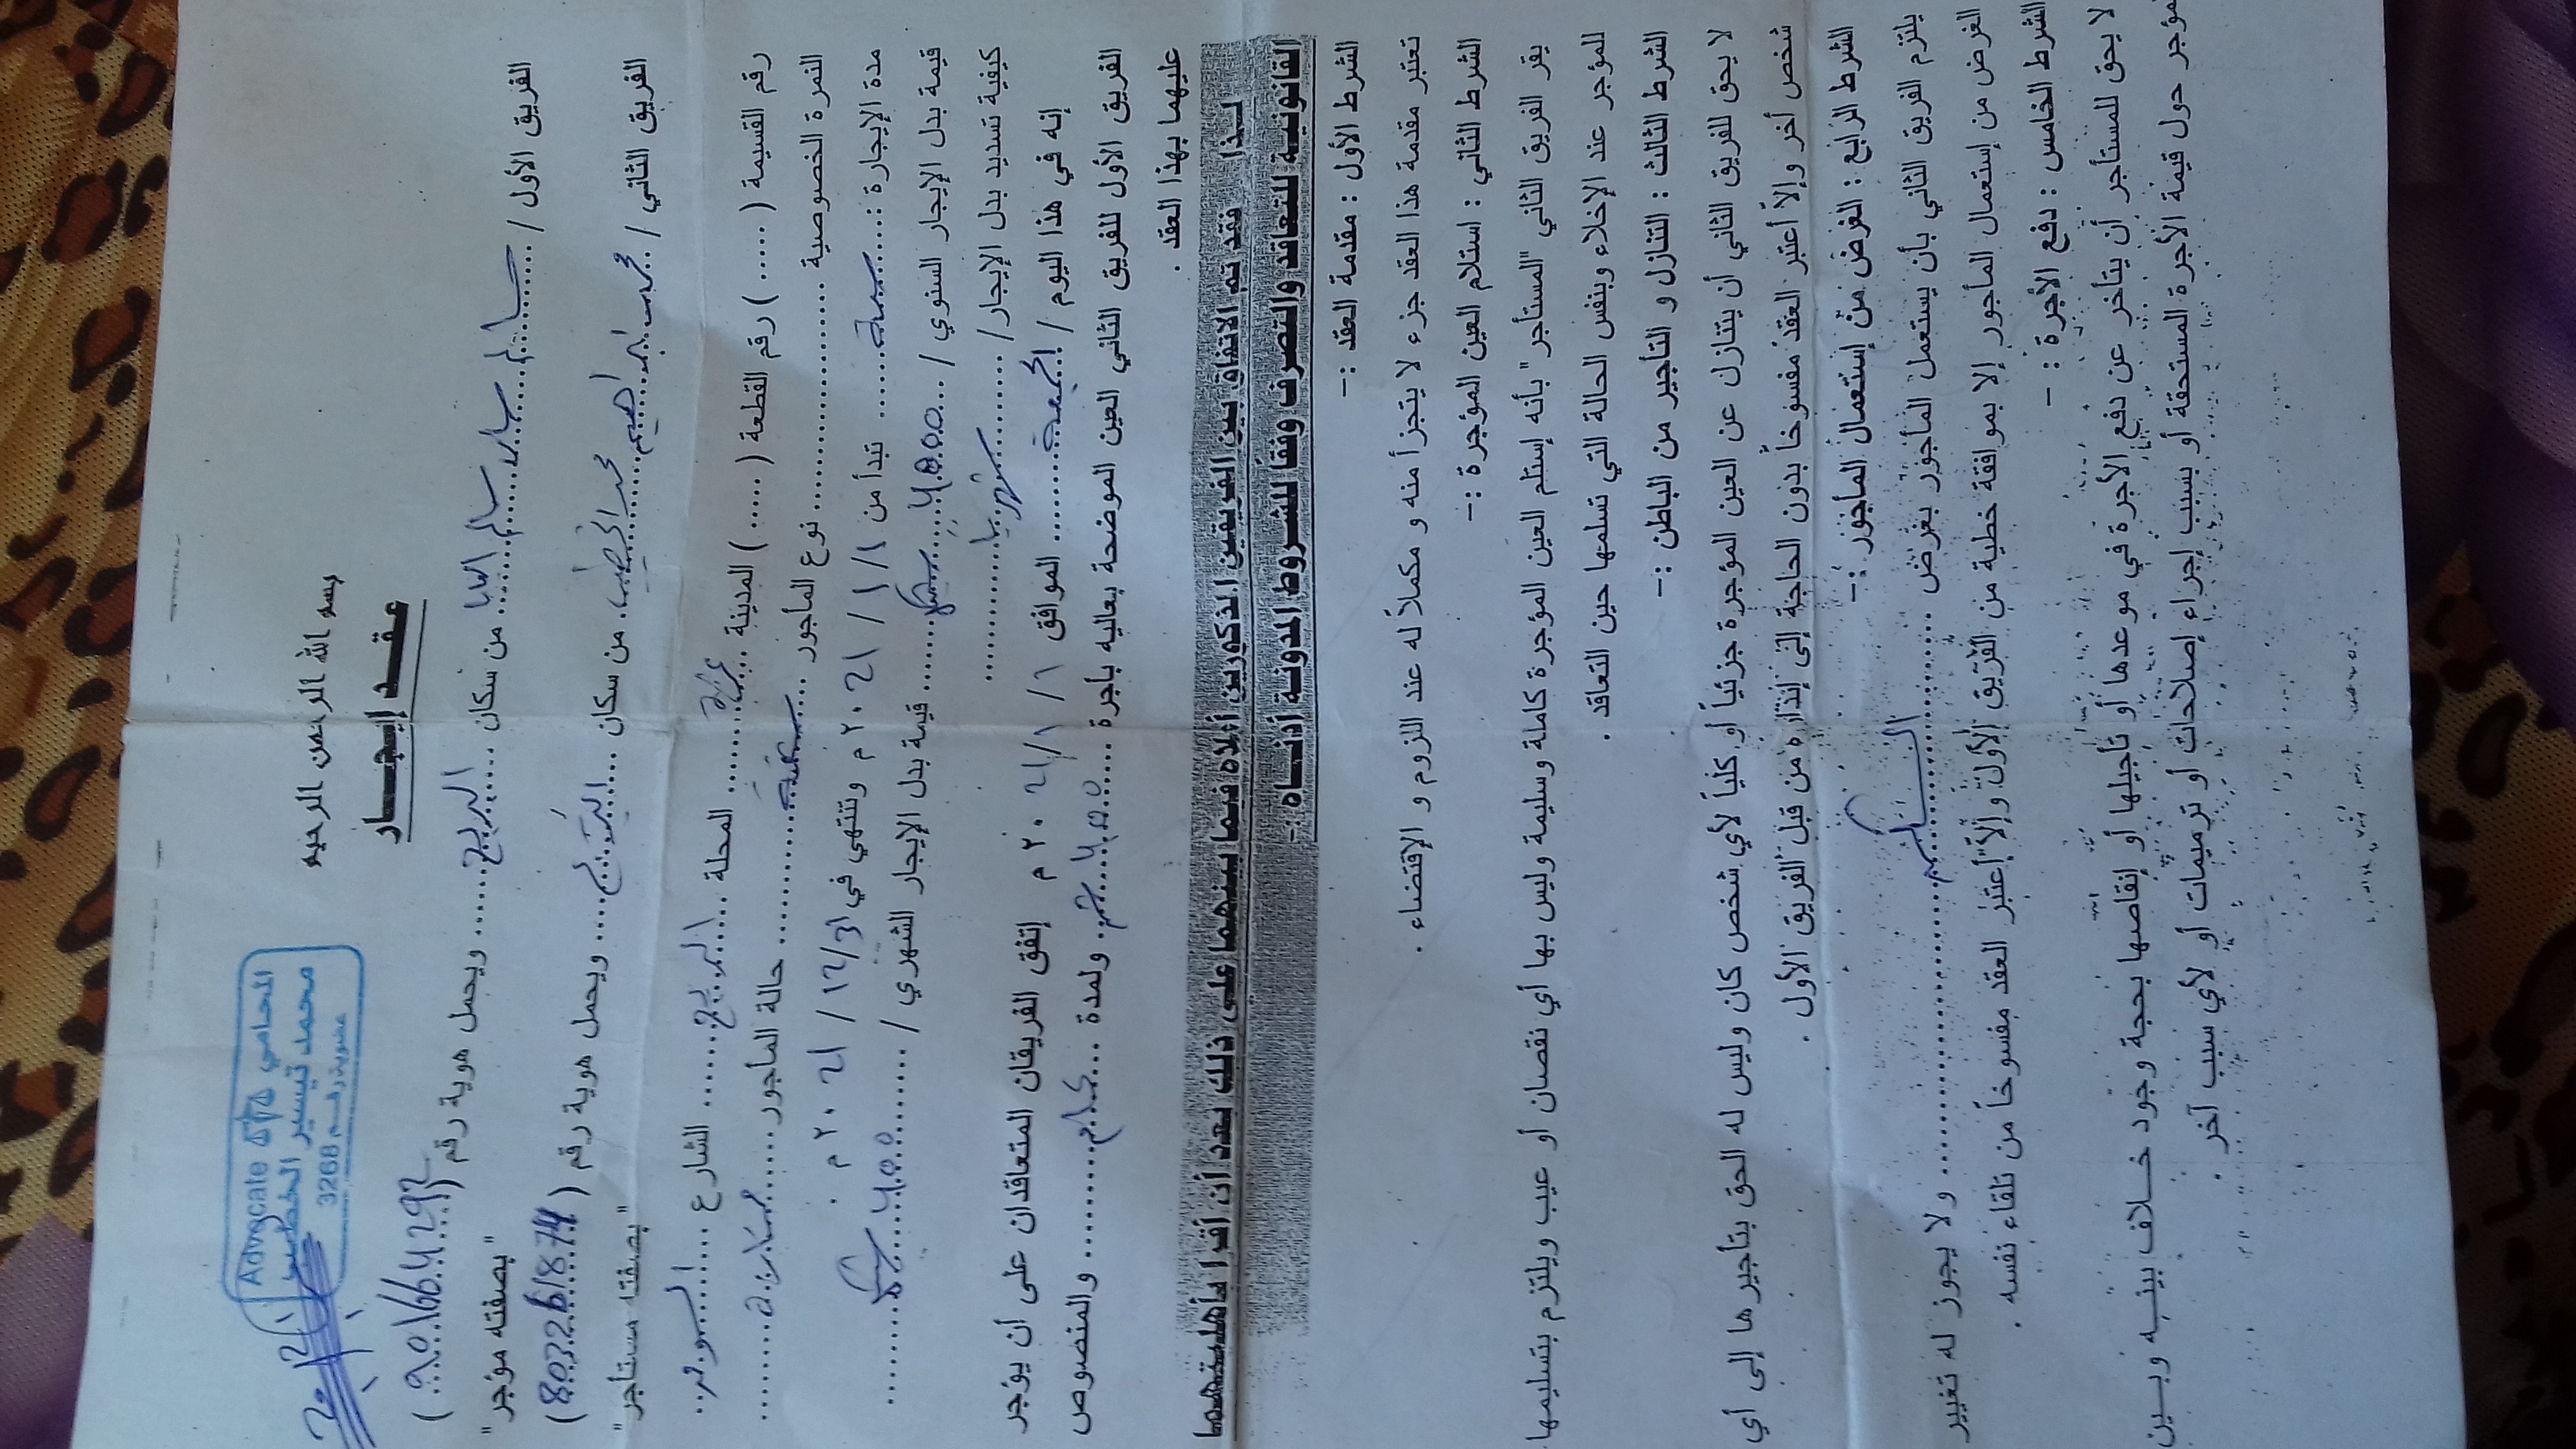 Advocate المحامي
محمد تيسير الخطيب
عضوية رقم 3268
بسم الله الرحمن الرحيم
عقد إيجار
الفريق الأول / سالم سالم من سكان البريج ويحمل هوية رقم (901664292)
"بصفته مؤجر"
الفريق الثاني / محمد ابراهيم محمد الخطيب من سكان البريج ويحمل هوية رقم (803261874)
"بصفته مستأجر"
رقم القسيمة (.....) رقم القطعة (.....) المدينة غزة المحلة البريج الشارع
النمرة الخصوصية .................... نوع المأجور شقة حالة المأجور ممتازة
مدة الإيجارة : سنة تبدأ من 1/1/2021 م وتنتهي في 31/12/2021 م .
قيمة بدل الإيجار السنوي / قيمة بدل الإيجار الشهري / 400
كيفية تسديد بدل الإيجار/ شهريا
إنه في هذا اليوم / الجمعة الموافق 1/1/2021 م إتفق الفريقان المتعاقدان على أن يؤجر
الفريق الأول للفريق الثاني العين الموضحة بعاليه بأجرة 400 ولمدة عام والمنصوص
عليهما بهذا العقد .
لـذا فقد تم الاتفاق بين الفريقين المذكورين أعلاه فيما بينهما على ذلك بعد أن أقرا بأهليتهما
القانونية للتعاقد والتصرف وفقاً للشروط المدونة أدناه :-
الشرط الأول : مقدمة العقد :-
تعتبر مقدمة هذا العقد جزء لا يتجزأ منه و مكملاً له عند اللزوم و الإقتضاء .
الشرط الثاني : استلام العين المؤجرة :-
يقر الفريق الثاني "المستأجر" بأنه إستلم العين المؤجرة كاملة وسليمة وليس بها أي نقصان أو عيب ويلتزم بتسليمها
للمؤجر عند الإخلاء وبنفس الحالة التي تسلمها حين التعاقد .
الشرط الثالث : التنازل و التأجير من الباطن :-
لا يحق للفريق الثاني أن يتنازل عن العين المؤجرة جزئياً أو كلياً لأي شخص كان وليس له الحق بتأجيرها إلى أي
شخص أخر وإلاّ أعتبر العقد مفسوخاً بدون الحاجة إلى إنذاره من قبل الفريق الأول .
الشرط الرابع : الغرض من إستعمال المأجور :-
يلتزم الفريق الثاني بأن يستعمل المأجور بغرض السكن ولا يجوز له تغيير
الغرض من إستعمال المأجور إلا بموافقة خطية من الفريق الأول وإلاّ أعتبر العقد مفسوخاً من تلقاء نفسه .
الشرط الخامس : دفع الأجرة : -
لا يحق للمستأجر أن يتأخر عن دفع الأجرة في موعدها أو تأجيلها أو إنقاصها بحجة وجود خلاف بينه وبين
مؤجر حول قيمة الأجرة المستحقة أو بسبب إجراء إصلاحات أو ترميمات أو لأي سبب آخر .